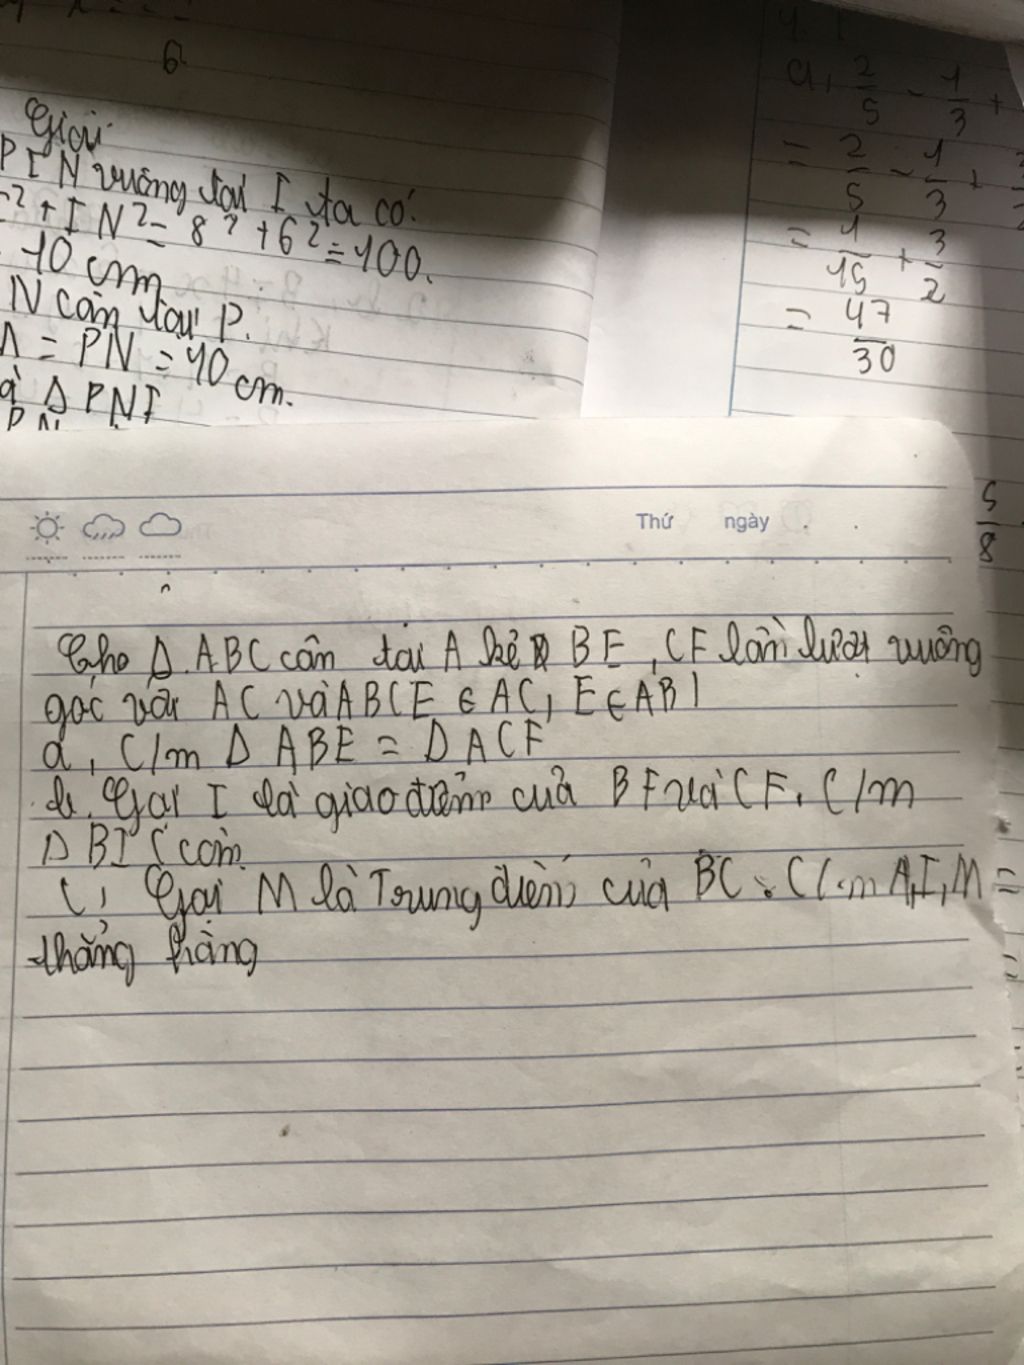 6
Giải
PIN vuông tại I ta có:
² + IN² = 8² + 6² = 100.
10 cm
N cân tại P.
= PN = 10 cm.
Δ PNI
PN
a, 2/5 - 1/3 +
= 2/5 - 1/3 +
= 1/15 + 3/2
= 47/30
5/8
Thứ ngày
Cho Δ ABC cân tại A kẻ BE, CF lần lượt vuông
góc với AC và AB (E ∈ AC, E ∈ AB)
a, C/m Δ ABE = Δ ACF
b. Gọi I là giao điểm của BF và CF. C/m
Δ BIC cân
C, Gọi M là Trung điểm của BC. C/m A, I, M =
thẳng hàng